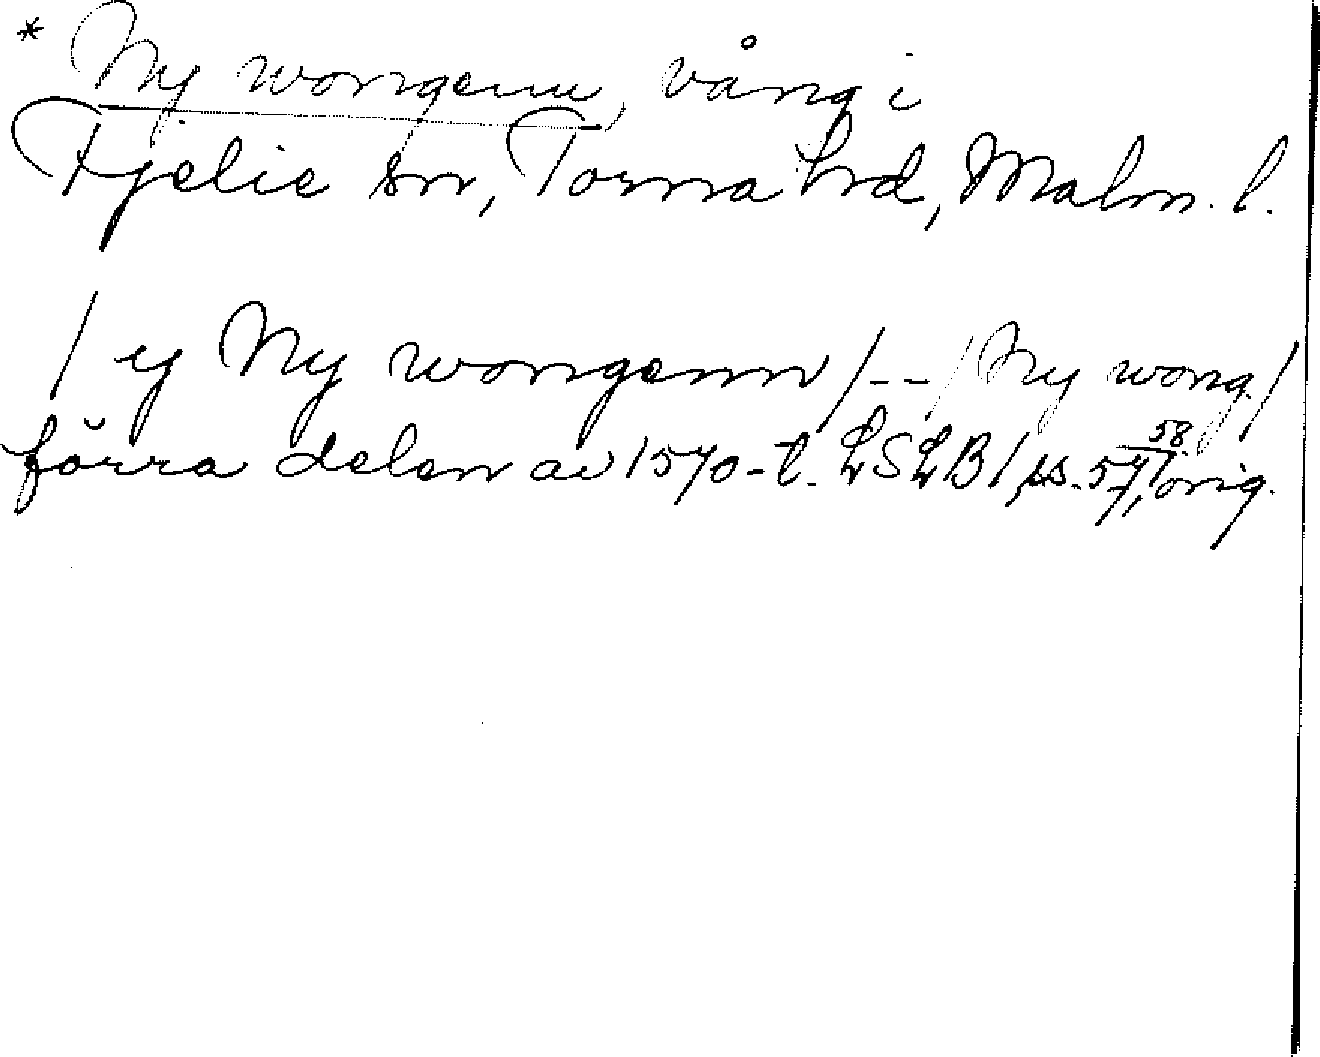 * Ny wongenn, vång i
Fjelie sn, Torna hrd, Malm. l.
/ y Ny wongenn /--/ Ny wong /
förra delen av 1570-t. LSLB 1, ss. 57, 58, orig.